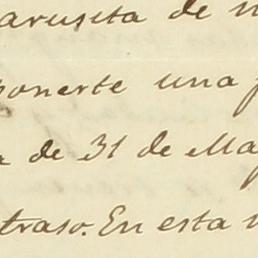 arusita de
ponerte una
de 31 de May
traso. En esta